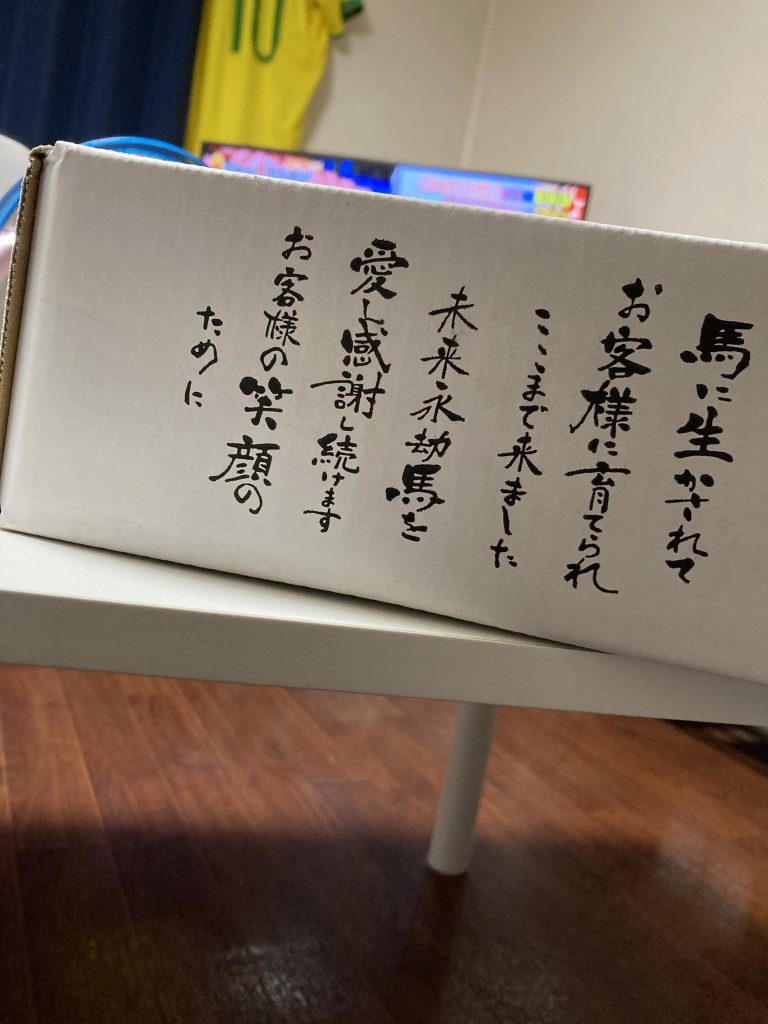 馬に生かされて
お客様に育てられ
ここまで来ました
未来永劫馬を
愛し感謝し続けます
お客様の笑顔の
ために
10